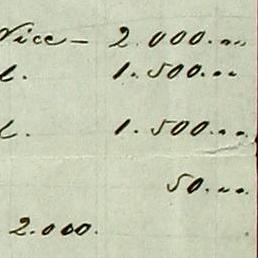 Vice – 2.000. „„
l. 1.500. „„
l. 1.500. „„
50. „„
2.000.